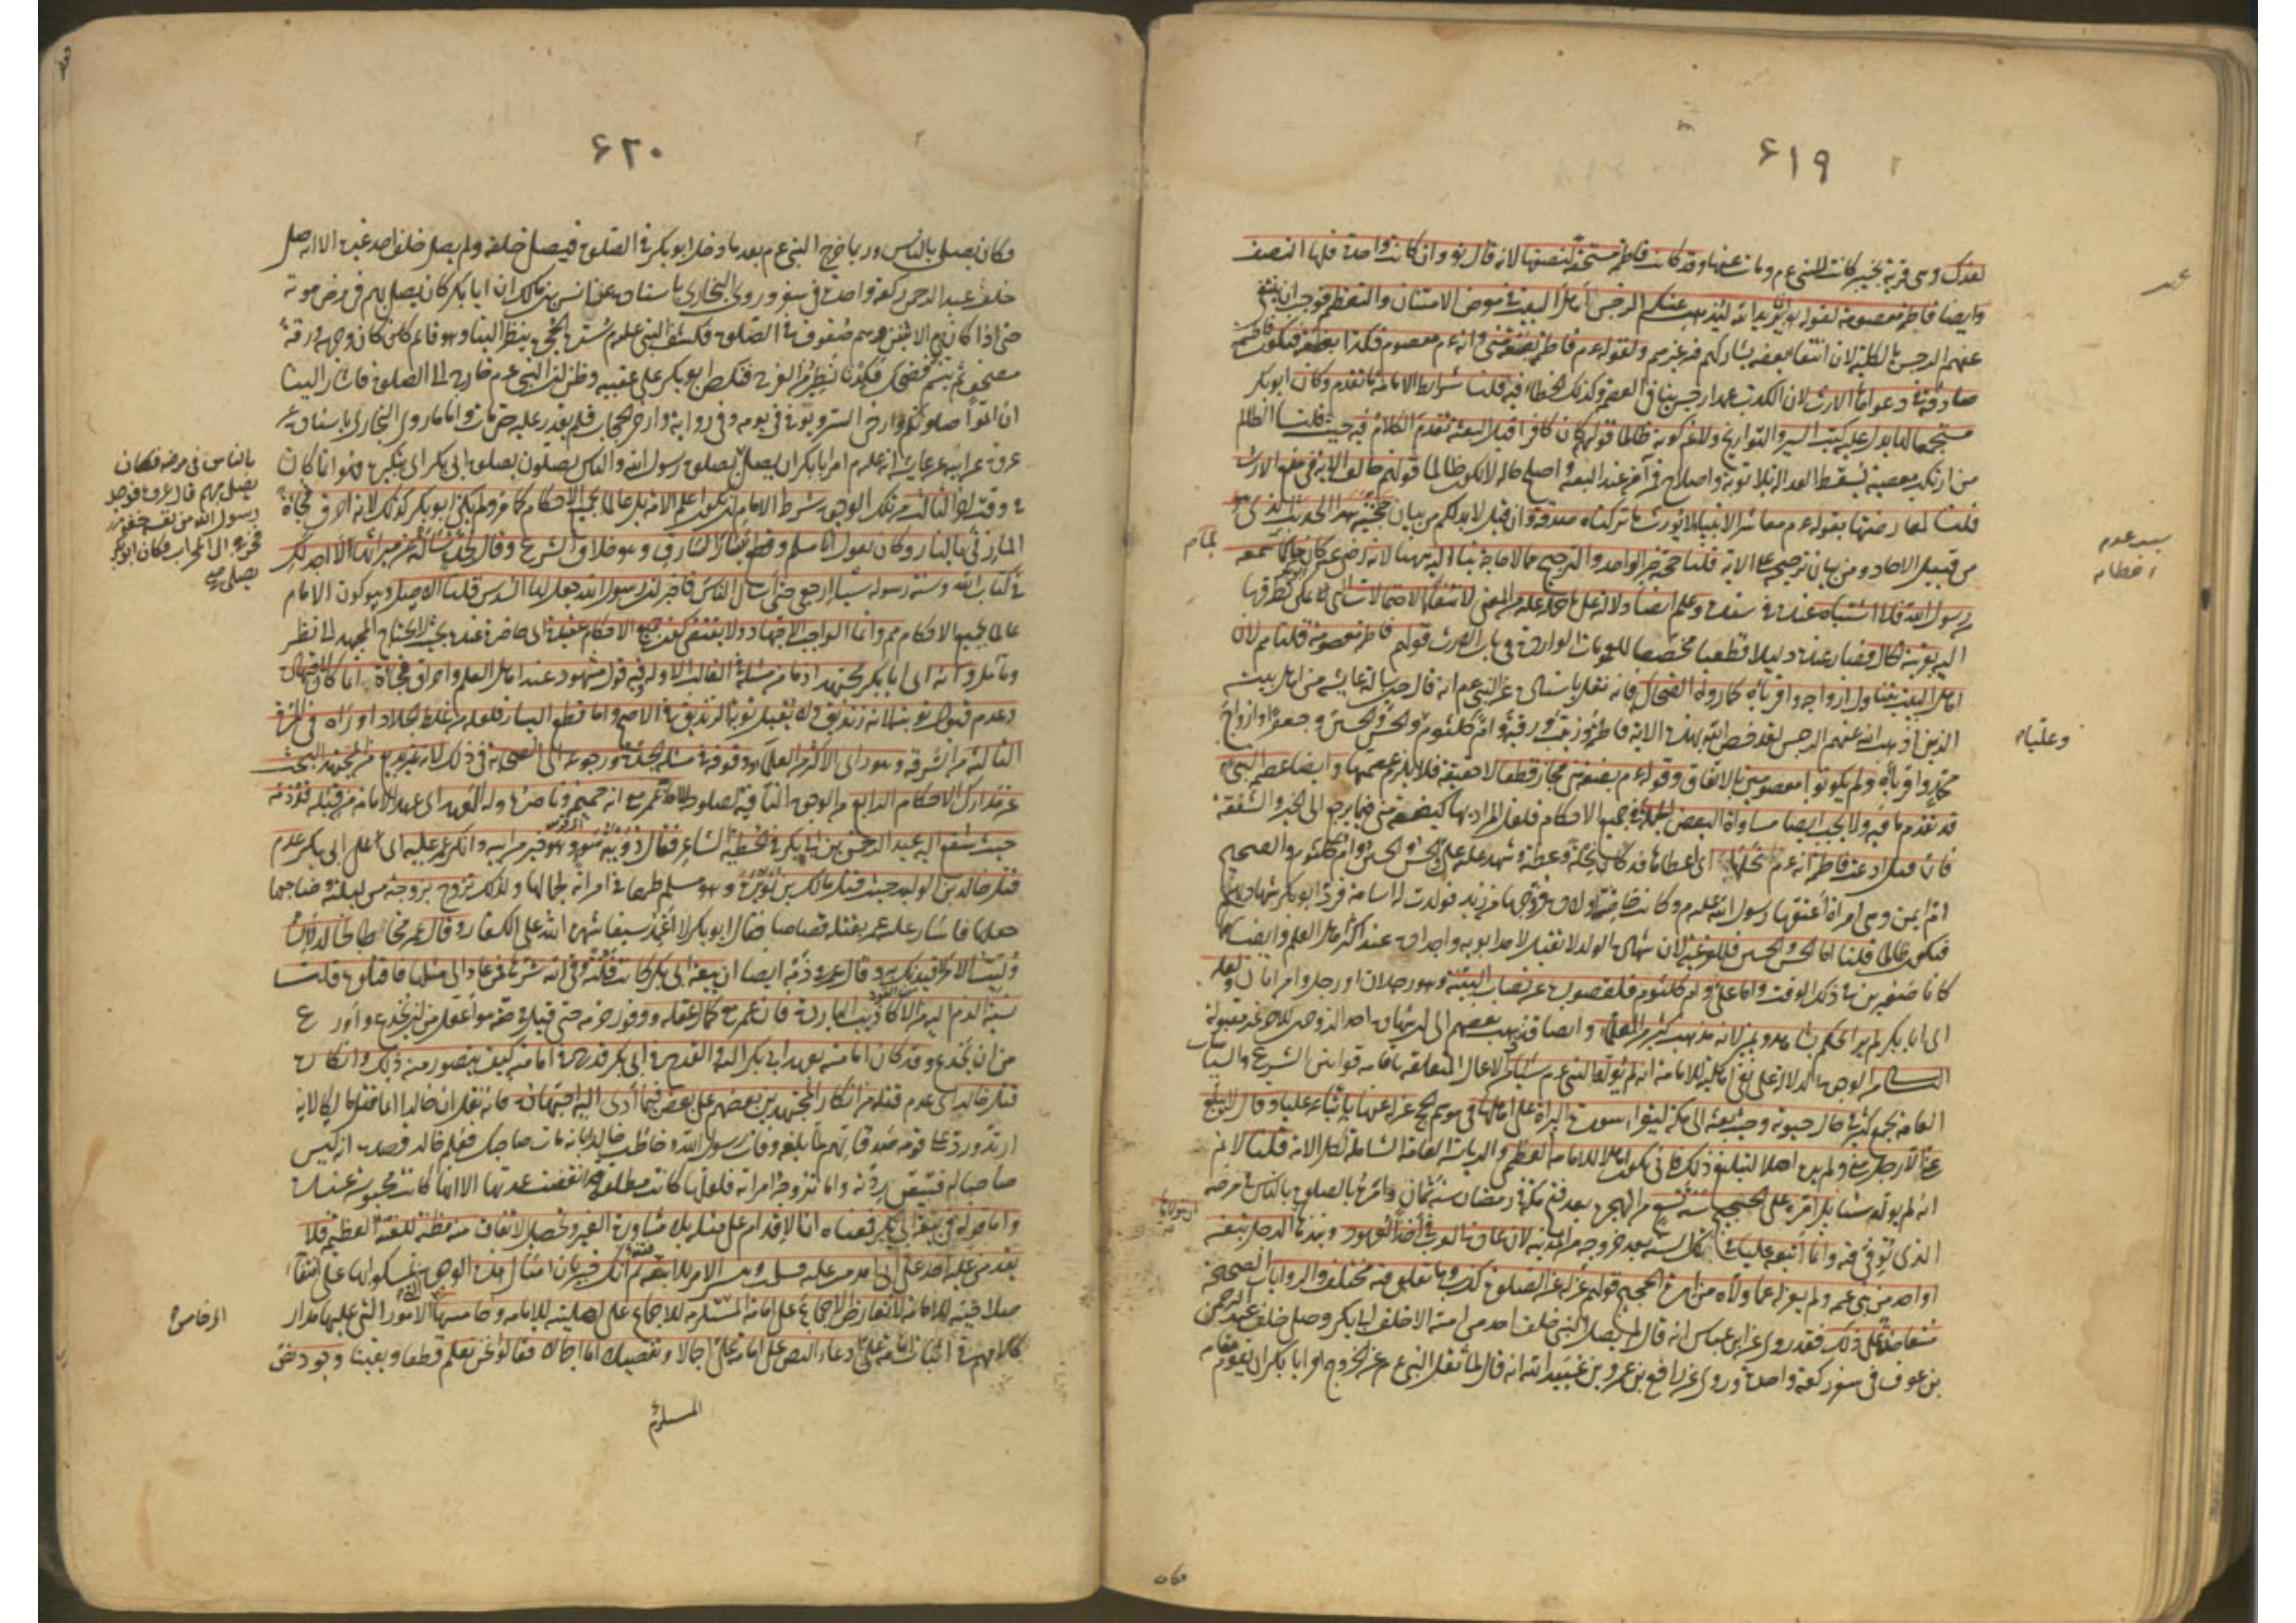 ٦١٩
لفدك وهي قرية بخيبر كانت للنبي عم ومات عنها وقد كانت فاطمة مستحقة لنصفها لانه قال تع وان كانت واحدة فلها النصف
وايضا فاطمة معصومة لقوله تع انما يريد الله ليذهب عنكم الرجس اهل البيت في معرض الامتنان والتعظيم فوجب ان ينتفي
عنهم الرجس بالكلية لان انتفا بعضه يشاركهم فيه غيرهم ولقوله عم فاطمة بضعة مني وانه عم معصوم فكذا بضعته فتكون فاطمة
صادقة في دعواها الارث لان الكذب عمدا رجس ينافي العصمة وكذلك الخطاء فيه قلنا شرايط الامامة ما تقدم وكان ابو بكر
مستجمعا لها يدل عليه كتب السير والتواريخ ولا نم كونه ظالما قولهم كان كافرا قبل البعثة تقدم الكلام فيه حيث قلنا الظالم
من ارتكب معصية تسقط العدالة بلا توبة واصلاح فمن آمن عند البعثة واصلح حاله لا يكون ظالما قولهم خالف الآية في منع الارث
قلنا لمعارضتها بقوله عم معاشر الانبيا لا نورث ما تركناه صدقة فان قيل لا بد لكم من بيان حجية هذا الحديث الذي هو
من قبيل الاحاد ومن بيان ترجيحه على الاية قلنا حجية خبر الواحد والترجيح مما لا حاجة بنا اليه ههنا لانه رضي عنه كان حاكما بما سمعه
من رسول الله فلا اشتباه عنده في سنده وعلم ايضا دلالته على ما حمله عليه من المعنى لانتفاء الاحتمالات التي يمكن تطرقها
اليه بقرينة الحال فصار عنده دليلا قطعيا مخصصا للعمومات الواردة في باب الارث قولهم فاطمة معصومة قلنا مم لان
اهل البيت يتناول ازواجه واقرباه كما رواه الضحاك فانه نقل باسناده عن النبي عم انه قال حين سالته عايشة من اهل بيته
الذين اذهب الله عنهم الرجس لقد خص الله بهذه الاية فاطمة وزينب ورقية وام كلثوم والحسن والحسين وجعفرا وازواج
محمد واقرباه ولم يكونوا معصومين بالاتفاق وقوله عم بضعة مني مجاز قطعا لا حقيقة فلا يلزم عصمتها وايضا عصمة النبي عم
قد تقدم ما فيه ولا يجب ايضا مساواة البعض الجملة في جميع الاحكام فلعل المراد بها كبضعة مني فيما يرجع الى الخير والشفقة
فان قيل ادعت فاطمة انه عم نحلها اي اعطاها فدكا نحلة وعطية وشهد عليه علي والحسن والحسين وام كلثوم والصحيح
ام ايمن وهي امراة اعتقها رسول الله عليه السلام وكانت حاضنة اولاده فزوجها من زيد فولدت له اسامة فرد ابو بكر شهادتهم
فيكون ظالما قلنا اما الحسن والحسين فللفرعية لان شهادة الولد لا تقبل لاحد ابويه واجداده عند اكثر اهل العلم وايضا هما
كانا صغيرين في ذلك الوقت واما علي وام كلثوم فلقصورهما عن نصاب البينة وهو رجلان او رجل وامراتان ولعله
اي ابا بكر لم ير الحكم بشاهد ويمين لانه مذهب كثير من العلماء وايضا فذهب بعضهم الى ان شهادة احد الزوجين للاخر غير مقبولة
السادس من الوجوه الدلالة على نفي اهليته للامامة انه لم يوله النبي عم شيئا من الاعمال المتعلقة باقامة قوانين الشرع والسياسات
العامة بجميع كثير في حال حيوته وحين بعثه الى مكة ليقرا سورة البراة على اهلها في موسم الحج عزله عنها باتباعه عليا وقال لا يبلغ
عني الا رجل مني ولم يره اهلا لتبليغ ذلك فانى يكون اهلا للامامة العظمى والرياسة العامة الشاملة لكل الامة قلنا لا نم
انه لم يوله شيئا بل امره على الحجيج سنة تسع من الهجرة بعد فتح مكة في رمضان سنة ثمان وامره بالصلوة بالناس في مرضه
الذي توفي فيه وانما اتبعه عليا في تلك السنة بعد خروجه من المدينة لان عادة العرب في اخذ العهود ونبذها ان يتولاه الرجل بنفسه
او احد من بني عمه ولم يعزله عما ولاه من امر الحجيج قولهم عزله عن الصلوة كذب وما نقلوه فيه مختلق والروايات الصحيحة
متعاضدة على ذلك فقد روى عن ابن عباس انه قال لم يصل النبي خلف احد من امته الا خلف ابي بكر وصلى خلف عبد الرحمن
بن عوف في سفر ركعة واحدة وروى عن رافع بن عمرو بن عبيد الله انه قال لما ثقل النبي عم عن الخروج امر ابا بكر ان يقوم مقامه
وعليا
فكان
٦٢٠
فكان يصلي بالناس وربما خرج النبي عم بعد ما دخل ابو بكر في الصلوة فيصلي خلفه ولم يصل خلف احد غيره الا انه صلى
خلف عبد الرحمن ركعة واحدة في سفر وروى البخاري باسناده عن انس بن مالك ان ابا بكر كان يصلي بهم في مرض موته
حتى اذا كان يوم الاثنين وهم صفوف في الصلوة فكشف النبي عليه السلام ستر الحجرة ينظر الينا وهو قائم كان وجهه ورقة
مصحف ثم تبسم فضحك فكدنا نطير من الفرح فنكص ابو بكر على عقبيه وظن ان النبي عم خارج الى الصلوة فاشار الينا
ان اتموا صلوتكم وارخى الستر وتوفي في يومه وفي رواية وارخى الحجاب فلم يقدر عليه حتى مات واما ما روى البخاري باسناده عن
عروة عن ابيه عن عايشة انه عليه السلام امر ابا بكر ان يصلي بصلوة رسول الله والناس يصلون بصلوة ابي بكر اي بتكبيره فهو انما كان
في وقت اخر الثالث من تلك الوجوه شرط الامام ان يكون اعلم الامة بل عالما بجميع الاحكام كما مر ولم يكن ابو بكر كذلك لانه احرق فجاءة
المازني بالنار وكان يقول انا مسلم وقطع يسار السارق وهو خلاف الشرع وقال لجدة سالته عن ميراثها لا اجد لك
في كتاب الله وسنة رسوله شيئا ارجعي حتى اسال الناس فاخبر ان رسول الله جعل لها السدس قلنا الاصل وهو كون الامام
عالما بجميع الاحكام مم وانما الواجب الاجتهاد ولا يقتضي كون جميع الاحكام عتيدة اي حاضرة عنده بحيث لا يحتاج المجتهد الى نظر
وتامل وانه اي ابا بكر مجتهد اذ ما من مسئلة في الغالب الا وله فيه قول مشهود عند اهل العلم واحراق فجاءة انما كان لاجتهاده
وعدم قبول توبته لانه زنديق ولا تقبل توبة الزنديق في الاصح واما قطع اليسار فلعله من غلط الجلاد او راه في المرة
الثالثة من السرقة وهو راي الاكثر من العلماء ووقوفه في مسئلة الجدة ورجوعه الى الصحابة في ذلك لانه غير بديع من المجتهد البحث
عن مدارك الاحكام الرابع من الوجوه النافية لصلوحه للامامة عمر مع انه حميمه وناصره وله العهد اي عهد الامامة من قبله قد ذمه
حيث شفع اليه عبد الرحمن بن ابي بكر في الحطيئة الشاعر فقال دويبة سوء وهو خير من ابيه وانكر عمر عليه اي على ابي بكر عدم
قتل خالد بن الوليد حيث قتل مالك بن نويرة وهو مسلم طمعا في امراته لجمالها ولذلك تزوج بزوجته من ليلته وضاجعها
فاشار عليه عمر بقتله قصاصا فقال ابو بكر لا اغمد سيفا شهره الله على الكفار وقال عمر مخاطبا لخالد لان
وليت الامر لاقيدنك به وقال عمر في ذمه ايضا ان بيعة ابي بكر كانت فلتة وقى الله شرها فمن عاد الى مثلها فاقتلوه قلنا
نسبة الذم اليه من الاكاذيب الباردة فان عمر مع كمال عقله ووفور حزمه حتى قيل في حقه هو اعقل من ان يخدع واورع
من ان يخدع وقد كان امامته بعهد ابي بكر اليه القدح في ابي بكر قدح في امامته كيف يتصور منه ذلك وانكاره
قتل خالد اي عدم قتله من انكار المجتهدين بعضهم على بعض فيما ادى اليه اجتهاده فانه نقل ان خالدا انما قتل مالكا لانه
ارتد ورد على قومه صدقاتهم لما بلغه وفاة رسول الله وخاطب خالدا بانه مات صاحبك فعلم خالد قصده انه ليس
صاحبا له فتيقن ردته واما تزوجه امراته فلعلها كانت مطلقة قد انقضت عدتها الا انها كانت محبوسة عنده
واما قوله في بيعة ابي بكر فمعناه ان الاقدام على مثله بلا مشاورة الغير وتحصيل الاتفاق منه مظنة للفتنة العظيمة فلا
يقدمن عليه احد على اني اقدمت عليه فسلمت وتيسر الامر بلا تبعة ثم انك خبير بان امثال هذه الوجوه لتمسكوا بها على انتفاء
صلاحيته للامامة لا تعارض الاجماع على امامته المستلزمة للاجماع على اهليته للامامة وخامسها الامور التي عليها مدار
كلامهم في اثبات امامة علي ادعاء النص على امامة علي اجمالا وتفصيلا اما اجمالا فقالوا نحن نعلم قطعا ويقينا وجود نص
بالناس في مرضه فكان
يصلي بهم قال عروة فوجد
رسول الله من نفسه خفة
فخرج الى المحراب فكان ابو بكر
يصلي صح